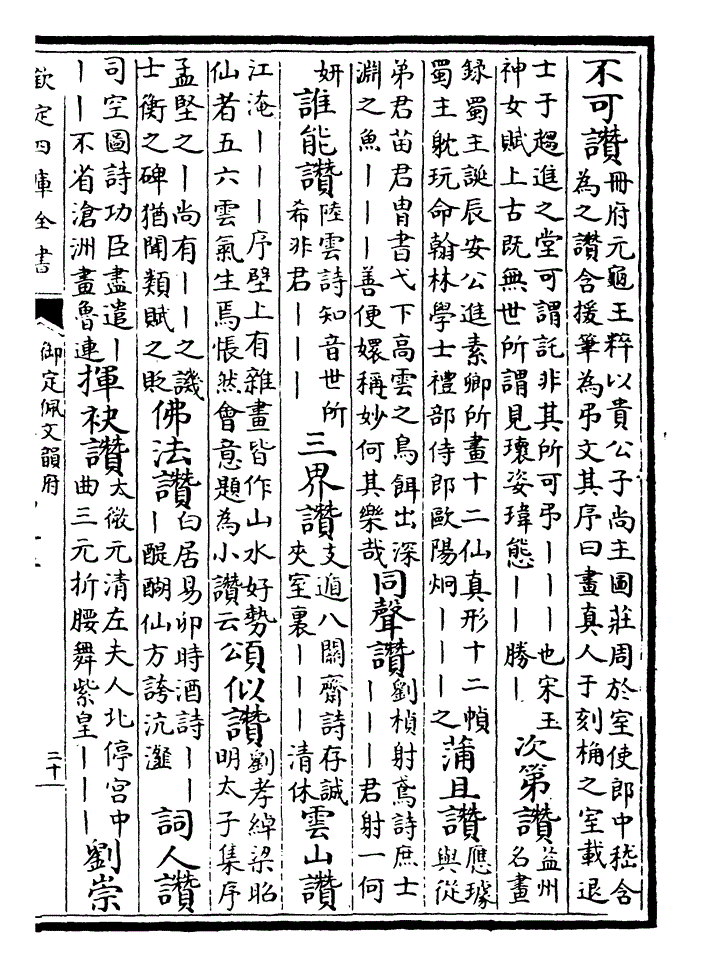 不可讚冊府元龜王粹以貴公子尚主圖莊周於室使郎中嵇含
為之讚含援筆為弔文其序曰畫真人于刻桷之室載退
士于趨進之堂可謂託非其所可弔丨丨丨也宋玉
神女賦上古既無世所謂見瓌姿瑋態丨丨勝丨
次第讚益州
名畫
錄蜀主誕辰安公進素卿所畫十二仙真形十二幀
蜀主躭玩命翰林學士禮部侍郎歐陽炯丨丨丨之
蒲且讚應璩
與從
弟君苗君冑書弋下高雲之鳥餌出深
淵之魚丨丨丨善便嬛稱妙何其樂哉
同聲讚劉楨射鳶詩庶士
丨丨丨君射一何
妍
誰能讚陸雲詩知音世所
希非君丨丨丨
三界讚支遁八關齋詩存誠
夾室裏丨丨丨清休
雲山讚
江淹丨丨丨序壁上有雜畫皆作山水好勢
仙者五六雲氣生焉悵然會意題為小讚云
頌似讚劉孝綽梁昭
明太子集序
孟堅之丨尚有丨丨之譏
士衡之碑猶聞類賦之貶
佛法讚白居易卯時酒詩丨丨
丨醍醐仙方誇沆瀣
詞人讚
司空圖詩功臣盡遣丨
丨丨不省滄洲畫魯連
揮袂讚太微元清左夫人北停宮中
曲三元折腰舞紫皇丨丨丨
劉崇
欽定四庫全書
御定佩文韻府
二十